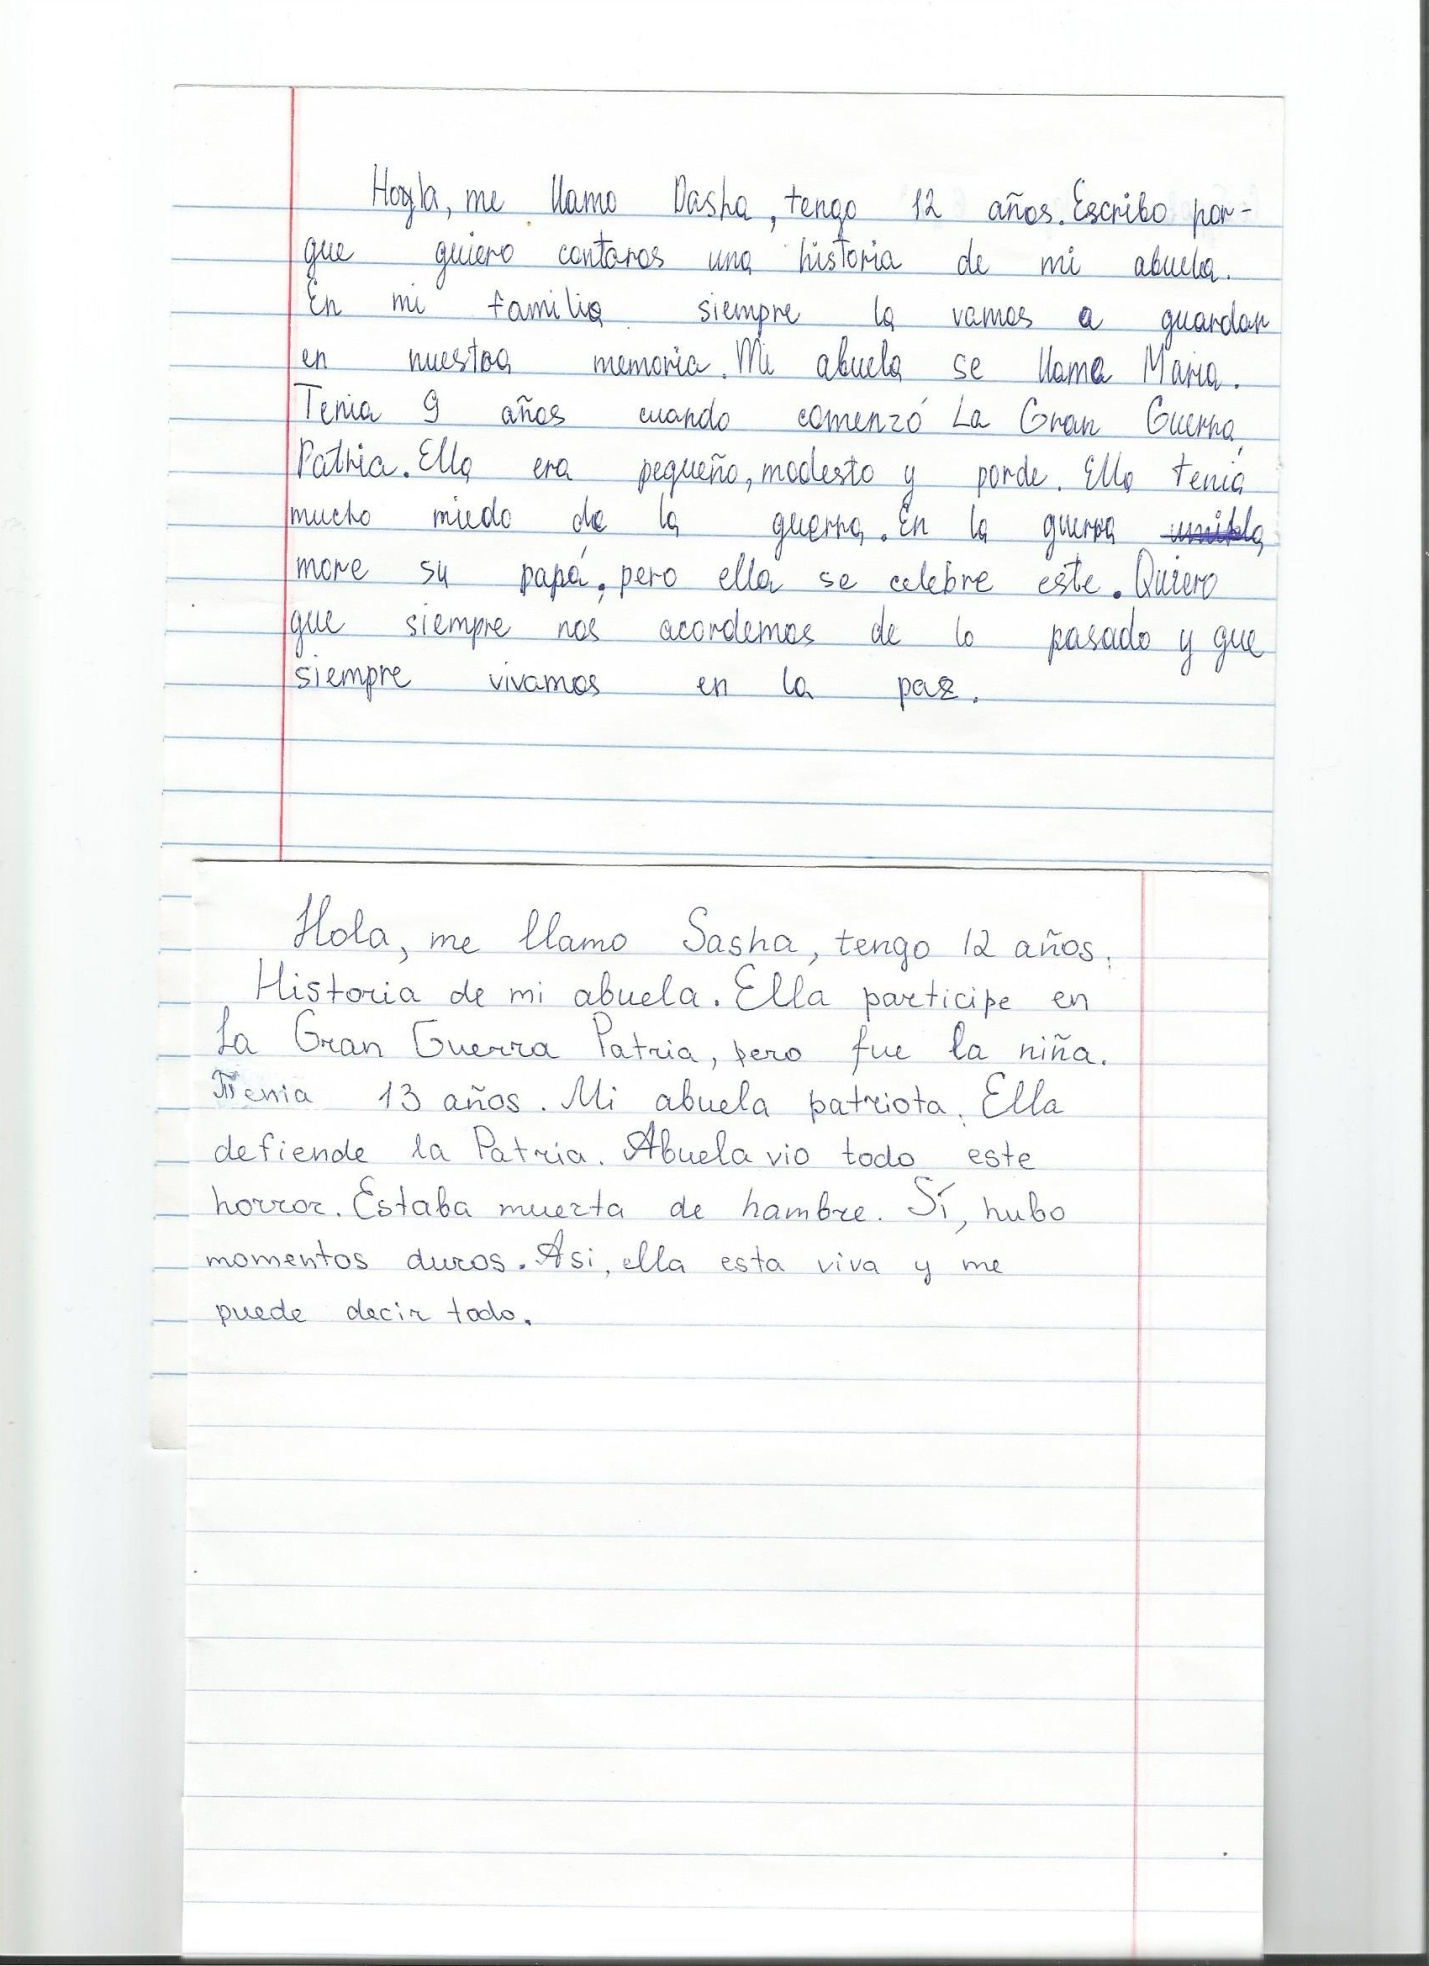 Hoyla, me llamo Dasha, tengo 12 años. Escribo por-
que quiero contaros una historia de mi abuela.
En mi familia siempre la vamos a guardar
en nuestra memoria. Mi abuela se llama Maria.
Tenia 9 años cuando comenzó La Gran Guerra
Patria. Ella era pequeño, modesto y porde. Ella tenia
mucho miedo de la guerra. En la guerra
more su papá, pero ella se celebre este. Quiero
que siempre nos acordemos de lo pasado y que
siempre vivamos en la paz.
Hola, me llamo Sasha, tengo 12 años.
Historia de mi abuela. Ella participe en
La Gran Guerra Patria, pero fue la niña.
Tenia 13 años. Mi abuela patriota. Ella
defiende la Patria. Abuela vio todo este
horror. Estaba muerta de hambre. Sí, hubo
momentos duros. Asi, ella esta viva y me
puede decir todo.